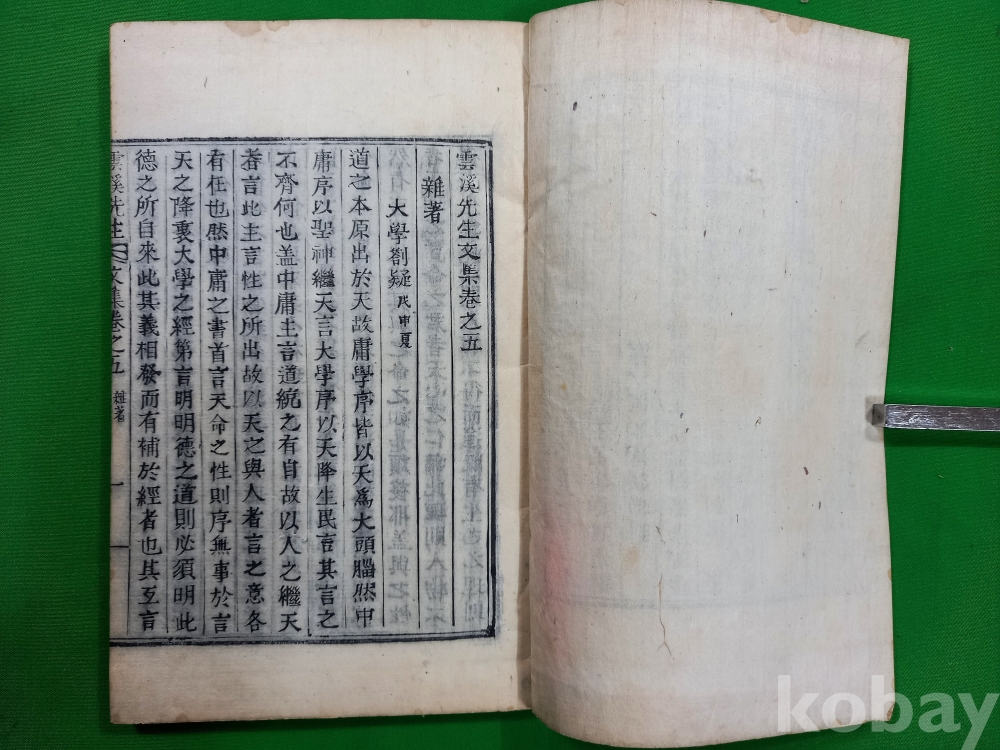 雲溪先生文集卷之五
雜著
大學劄疑 戊申夏
道之本原出於天故庸學序皆以天爲大頭腦然中
庸序以聖神繼天言大學序以天降生民言其言之
不齊何也盖中庸主言道統之有自故以人之繼天
者言此主言性之所出故以天之與人者言之意各
有在也然中庸之書首言天命之性則序無事於言
天之降衷大學之經第言明明德之道則必須明此
德之所自來此其義相發而有補於經者也其互言
雲溪先生文集卷之五 雜著 一
kobay